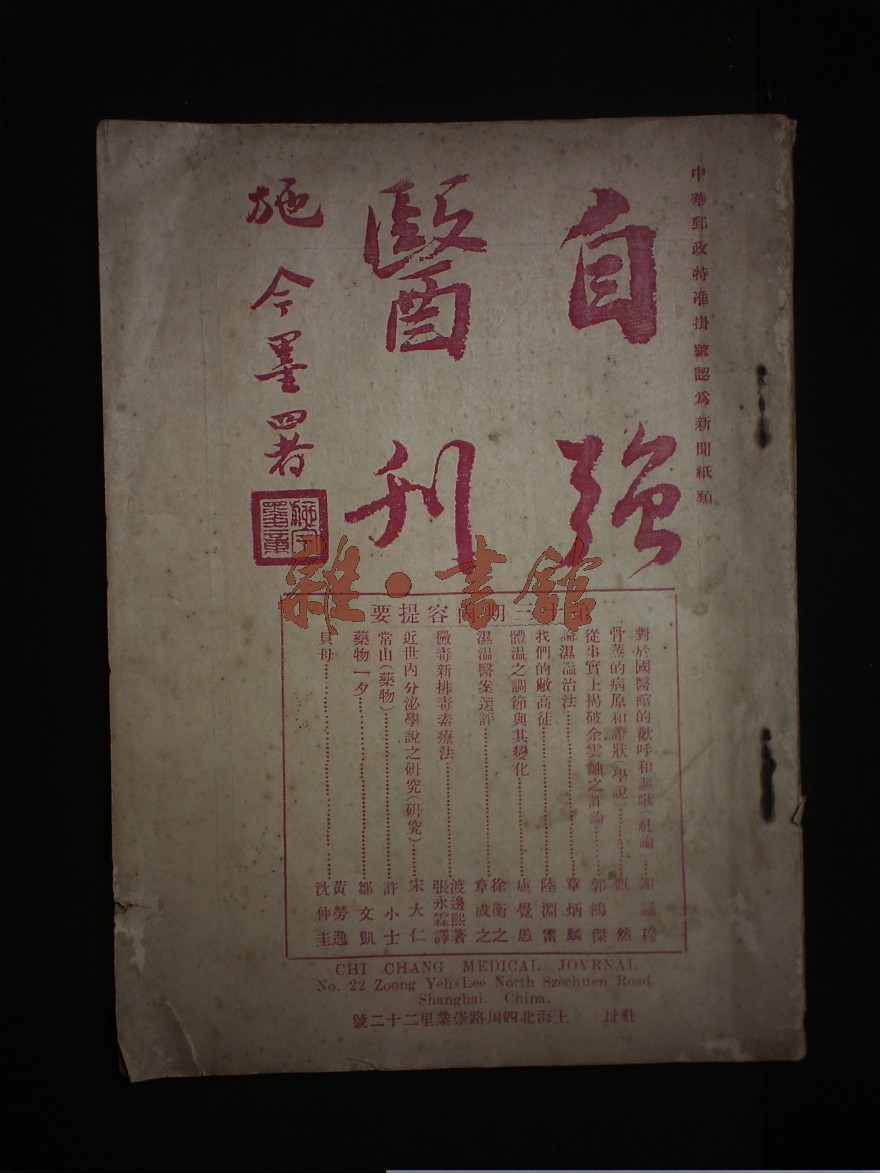 中華郵政特准掛號認爲新聞紙類
自強
醫刊
施今墨署
期內容提要
對於國醫館的歡呼和
骨蒸的病原和證狀(學說)
從事實上揭破余雲岫之評論 郭鴻傑
論濕溫治法 章炳麟
我們的敝高徒 陸淵雷
體溫之調節與其變化 盧覺愚
濕溫醫案選評 徐衡之 章成之
黴毒新排毒素療法 渡邊熙著 張永霖譯
近世內分泌學說之研究(研究) 宋大仁
常山(藥物) 許小士
藥物一夕 鄒文凱
貝母 黃勞逸 沈仲圭
CHI CHANG MEDICAL JOVRNAL
No. 22 Zoong Yeh Lee North Szechuen Road
Shanghai. China.
社址 上海北四川路崇業里二十二號
雜·書館